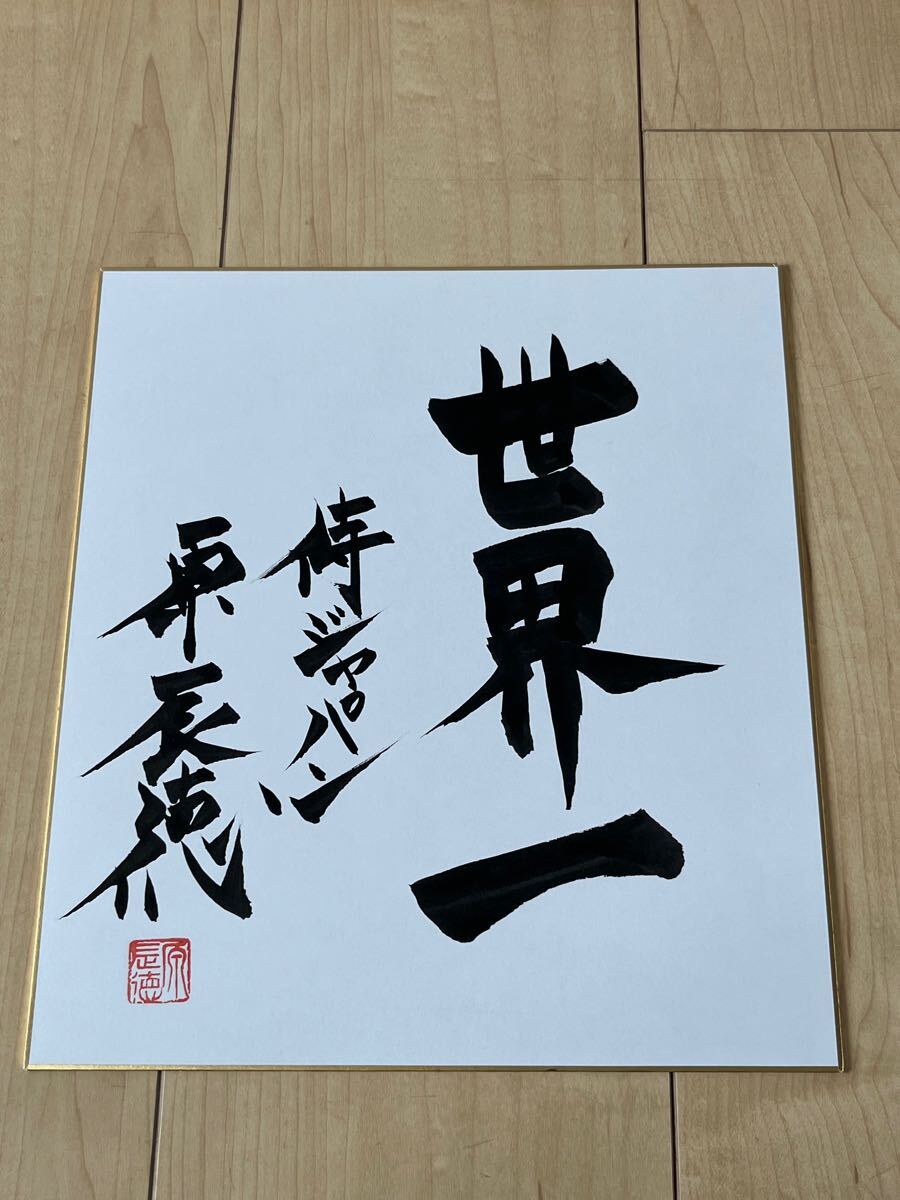 世界一
侍ジャパン
原辰徳
原辰徳